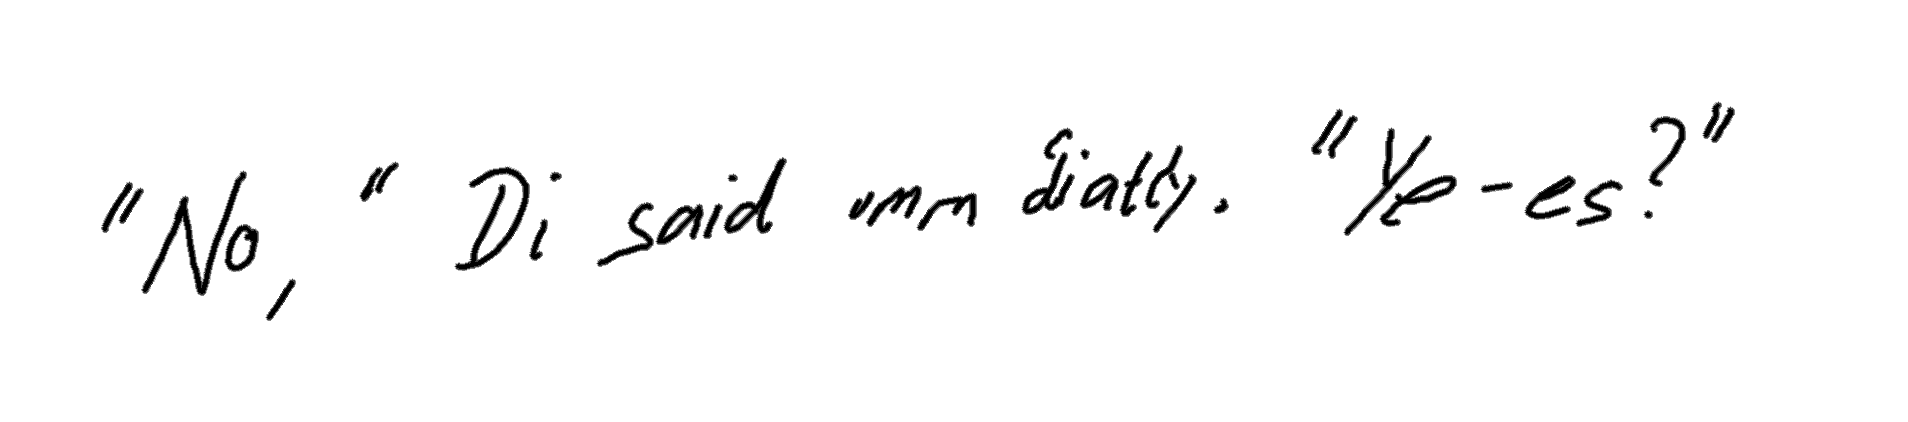 "No," Di said immediatly. "Ye-es?"